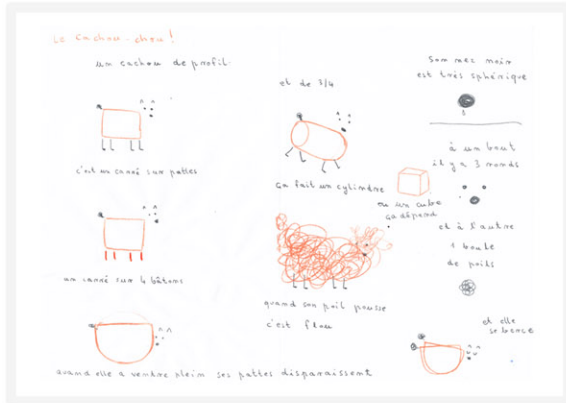 Le Cachou-chou!
un cachou de profil
c'est un carré sur pattes
un carré sur 4 bâtons
quand elle a ventre plein ses pattes disparaissent
et de 3/4
ça fait un cylindre
ou un cube
ça dépend
quand son poil pousse
c'est flou
son nez noir
est très sphérique
à un bout
il y a 3 ronds
et à l'autre
1 boule
de poils
et elle
se berce